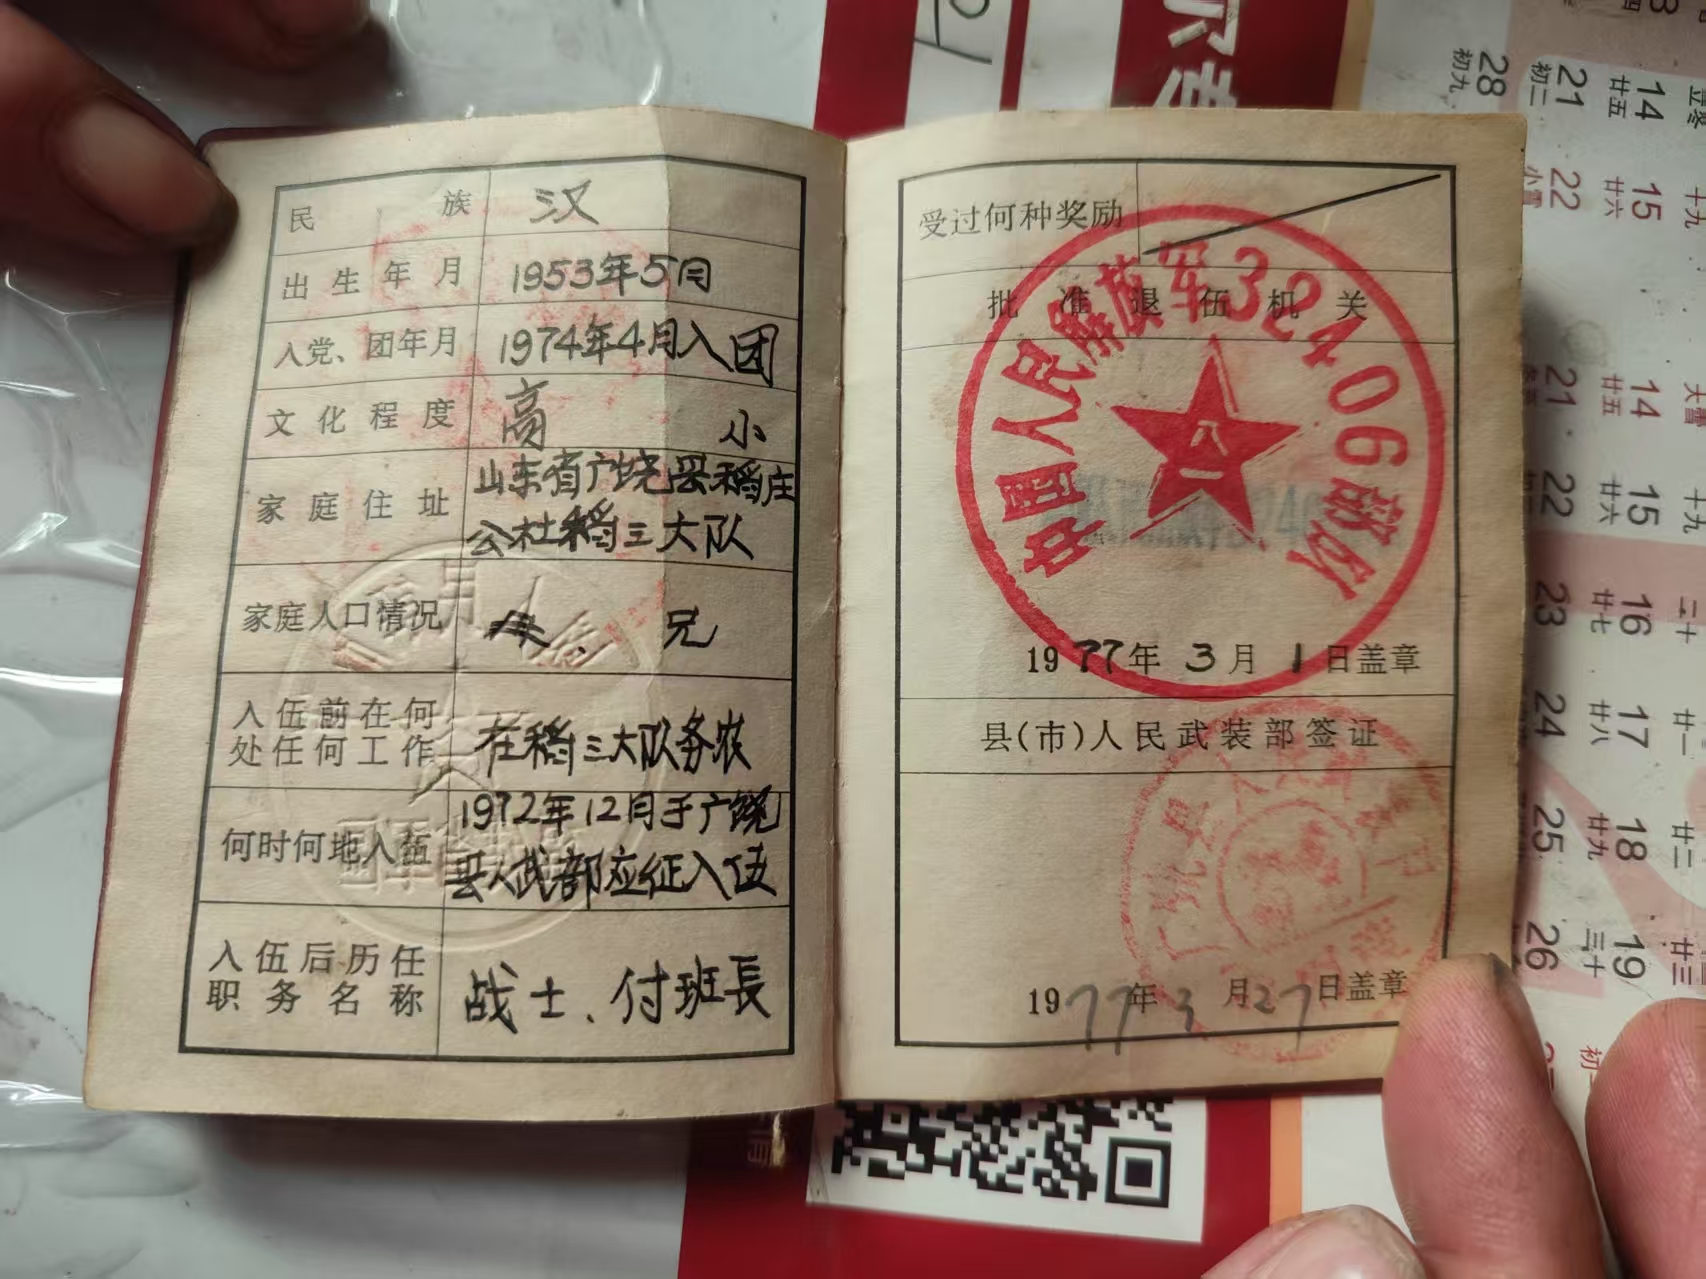 民族 汉
出生年月 1953年5月
入党、团年月 1974年4月入团
文化程度 高小
家庭住址 山东省广饶县稻庄
公社稻三大队
家庭人口情况 兄
入伍前在何
处任何工作 在稻三大队务农
何时何地入伍 1972年12月于广饶
县人武部应征入伍
入伍后历任
职务名称 战士、付班長
受过何种奖励
批准退伍机关
中国人民解放军32406部队
八一
1977年3月1日盖章
县(市)人民武装部签证
1977年3月27日盖章
28 21 14
初九 初二 廿五
22 15
小雪 廿六 十九
21 14
廿五 大雪
22 15
廿六 十九
23 16
廿七 二十
24 17
廿八 廿一
25 18
廿九 廿二
26 19
三十 廿三